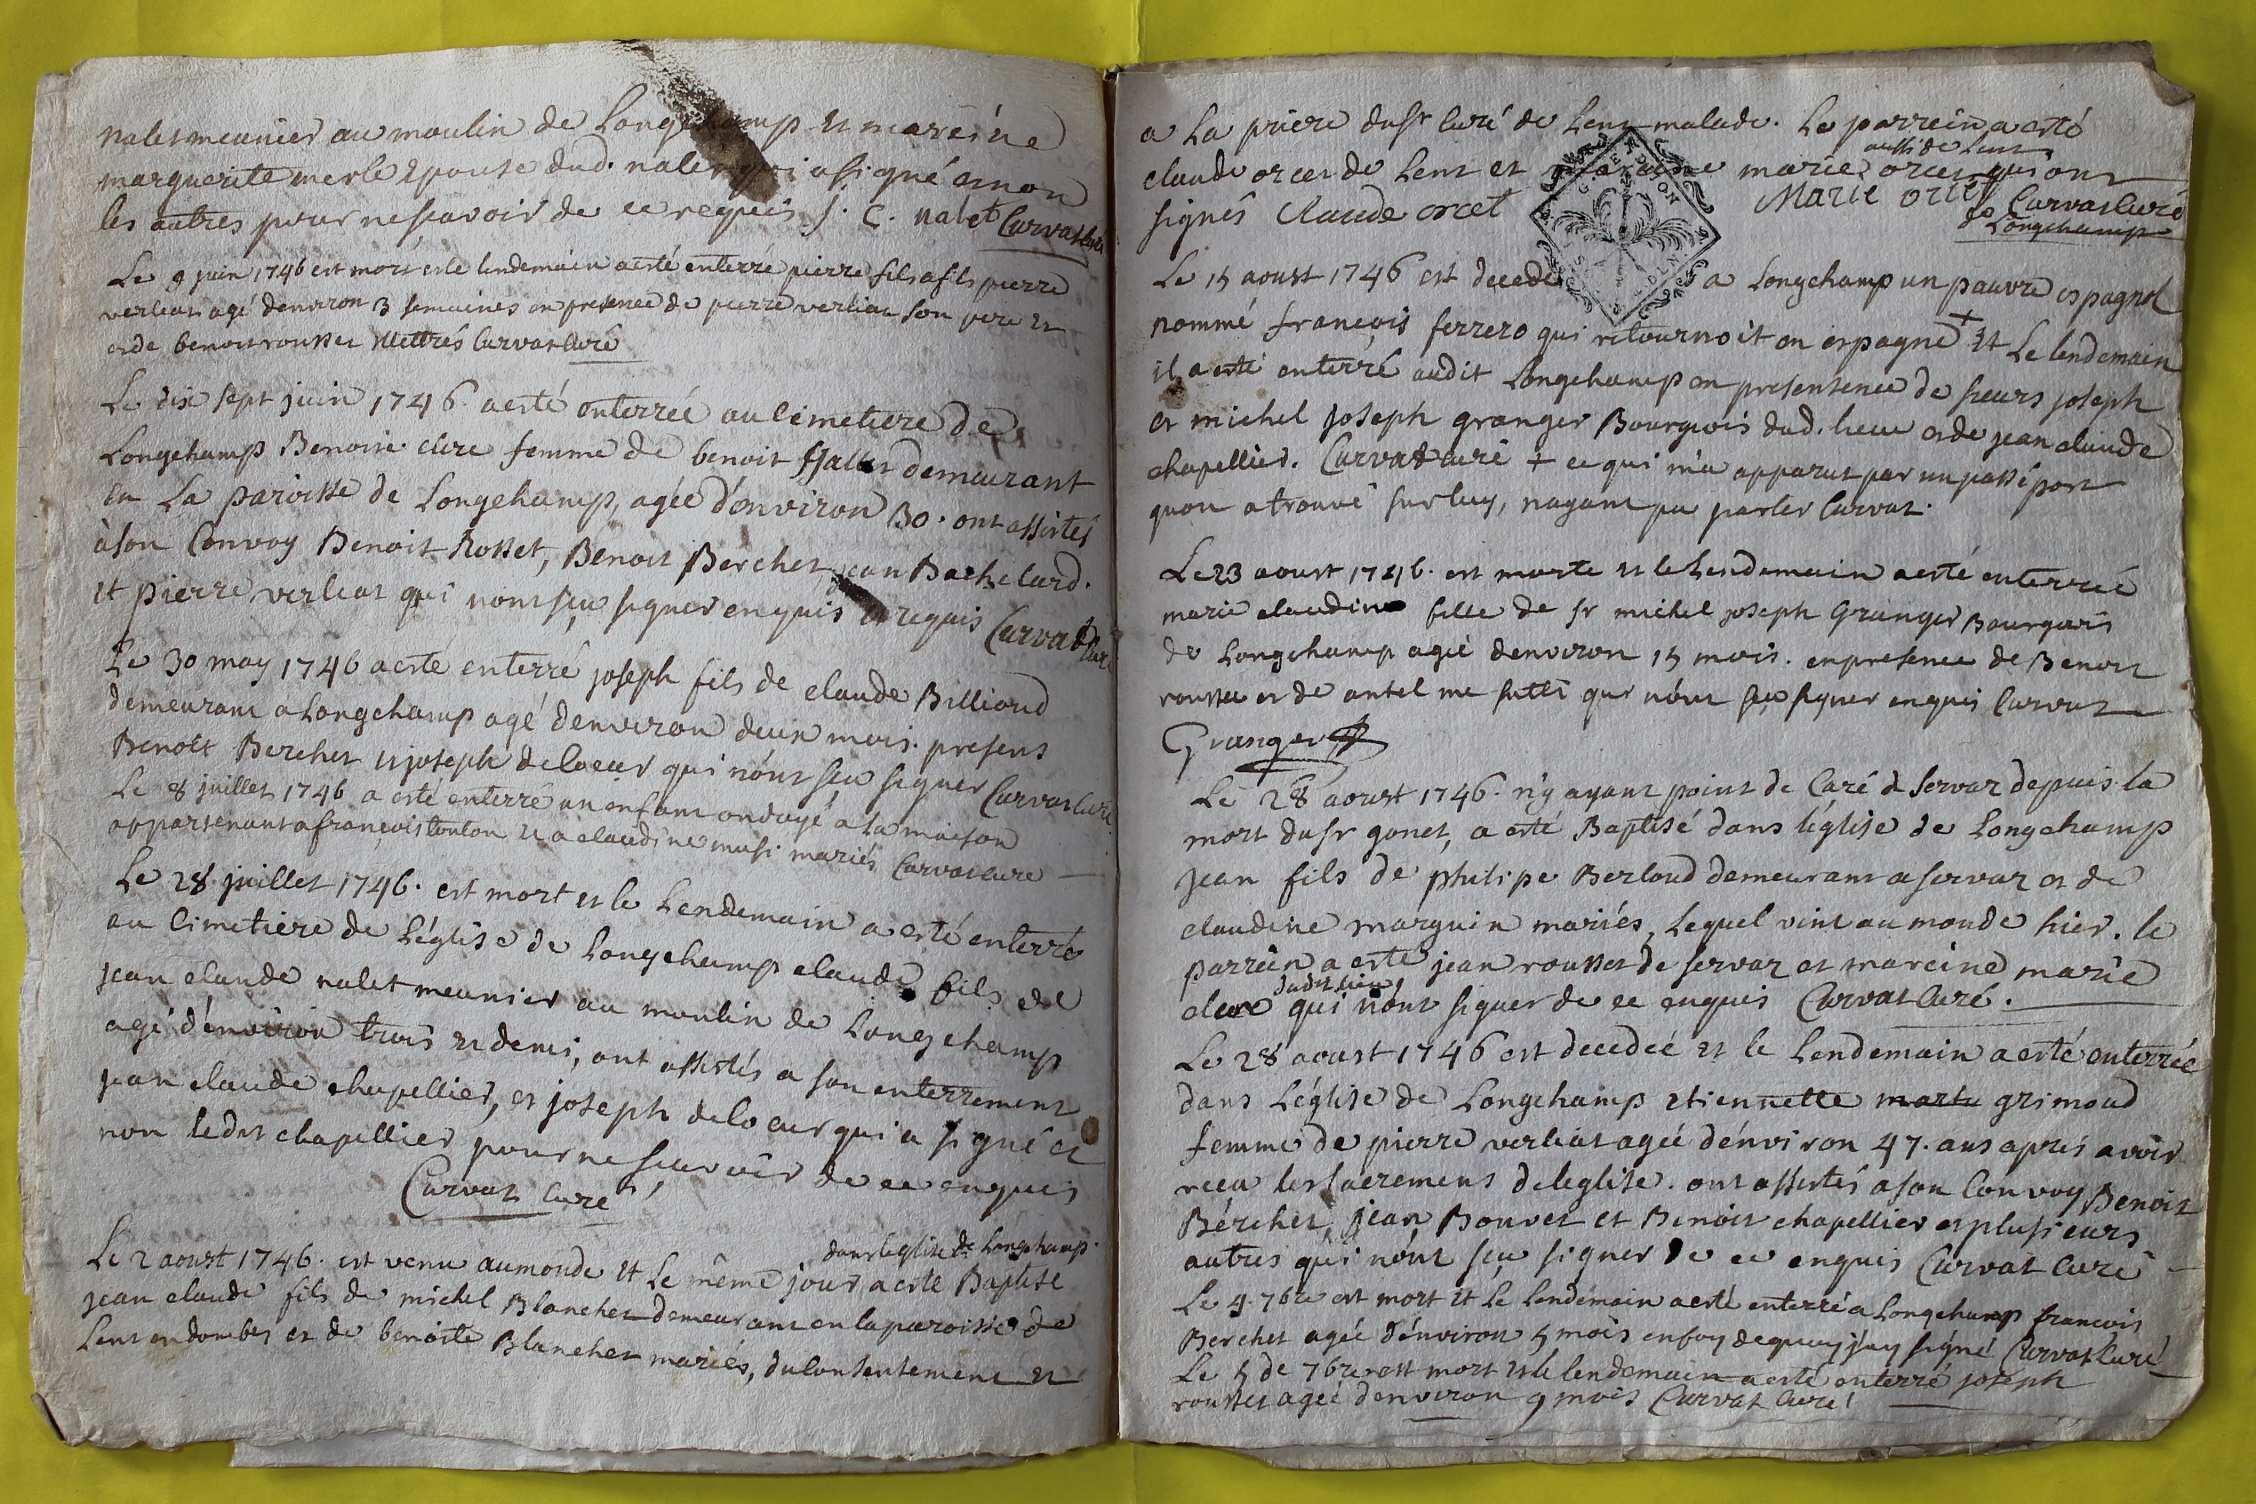 nalet meunier au moulin de Longchamp et mareine
marguerite merle epouse dud. nalet qui a signé et non
les autres pour ne scavoir de ce requis J. C. nalet Curvat Curé
Le 9 juin 1746 est mort et le lendemain a esté enterré pierre fils a fils pierre
verliat agé denviron 3 semaines en presence de pierre verliat son pere et
et de benoit rousset illettrés Curvat Curé
Le dix sept juin 1746 a esté enterrée au Cimetiere de
Longchamp Benoite cure femme de benoit demeurant
en La paroisse de Longchamp, agée d'environ 30. ont assistés
à son Convoy Benoit Rosset, Benoit Berchet, jean Bachelard.
et pierre verliat qui n'ont sçu signer enquis et requis Curvat Curé
Le 30 may 1746 a esté enterré joseph fils de claude Billioud
demeurant a Longchamp agé denviron deun mois. presens
Benoit Berchet et joseph delocur qui n'ont sçu signer Curvat Curé
Le 8 juillet 1746 a esté enterré un enfant ondoyé a la maison
appartenant a françois tonton et a claudine musi mariés Curvat Curé
Le 28 juillet 1746. est mort et le Lendemain a esté enterré
au Cimetiere de L'église de Longchamp claude fils de
jean claude nalet meunier au moulin de Longchamp
agé d'environ trois et demi, ont assistés a son enterrement
jean claude chapellier, et joseph delocur qui a signé et
non ledit chapellier pour ne sçavoir de ce enquis
Curvat Curé
dans leglise de Longchamp.
Le 2 aoust 1746. est venu au monde et Le même jour a esté Baptisé
jean claude fils de michel Blanchet demeurant en la paroisse de
Lent en dombes et de benoite Blanchet mariés, du Consentement et
a La priere du Sr Curé de Lent malade. Le parrein a esté
aussi de Lent
claude orcet de Lent et maraine marie orcet qui ont
signés Claude orcet Marie orcet Curvat Curé
de Longchamp
Le 15 aoust 1746 est decedé a Longchamp un pauvre espagnol
nommé françois ferrero qui retournoit en espagne + et Le lendemain
il a esté enterré audit Longchamp en presentence de sieurs joseph
et michel joseph granger Bourgeois dud. lieu et de jean claude
chapellier. Curvat curé + ce qui m'a apparut par un passéport
quon a trouvé sur luy, nayant pu parler Curvat.
Le 23 aoust 1746. est morte et le Lendemain a esté enterrée
marie claudine fille de Sr michel joseph Granger Bourgeois
de Longchamp agée denviron 15 mois. en presence de Benoit
rousset et de antel me qui n'ont sçu signer enquis Curvat
Granger
Le 28 aoust 1746. n'y ayant point de Curé a Servaz depuis la
mort du Sr gonet, a esté Baptisé dans l'église de Longchamp
jean fils de philipe Berloud demeurant a servaz et de
claudine marguin mariés, Lequel vint au monde hier. le
parrein a esté jean rousset de servaz et mareine marie
dudit lieu
clere qui n'ont signer de ce enquis Curvat Curé.
Le 28 aoust 1746 est decedée et le Lendemain a esté enterrée
dans L'église de Longchamp etiennette grimoud
femme de pierre verliat agée d'environ 47. ans aprés avoir
receu les sacremens de leglise. ont assistés a son Convoy Benoit
Bérchet, jean Bouvet et Benoit chapellier et plusieurs
autres qui n'ont sçu signer de ce enquis Curvat Curé
Le 4 7bre est mort et Le Lendemain a esté enterré a Longchamp francois
Berchet agée d'environ 5 mois en foy de quoy j'ay signé Curvat Curé
Le 5 de 7bre est mort et le lendemain a esté enterré joseph
rousset agée denviron 9 mois Curvat Curé